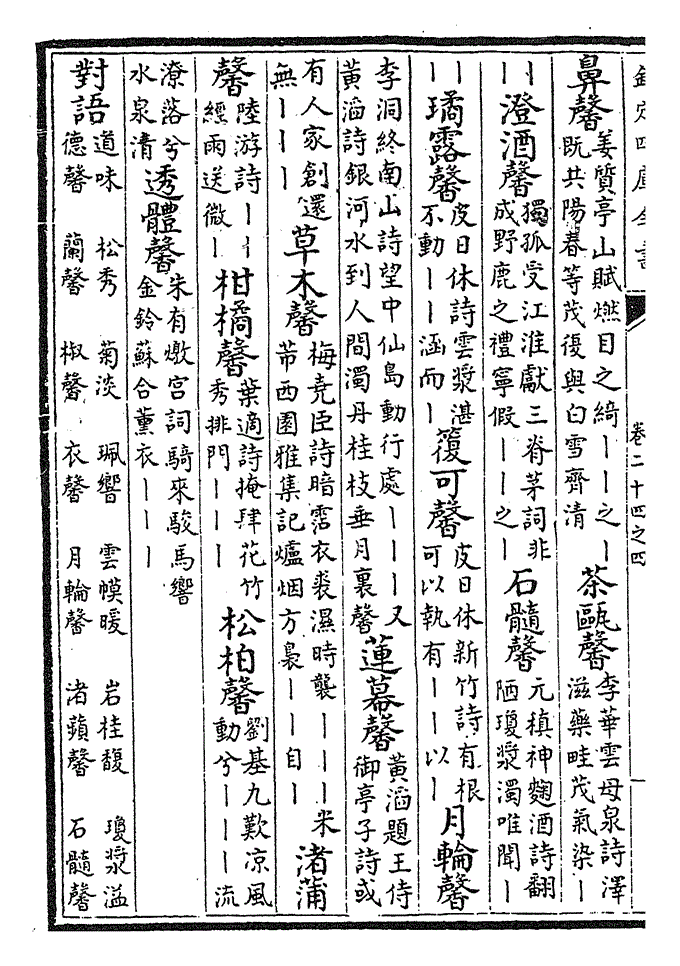 欽定四庫全書
卷二十四之四
鼻馨姜質亭山賦燃目之綺丨丨之丨既共陽春等茂復與白雪齊清 茶甌馨李華雲母泉詩澤滋藥畦茂氣染丨
丨丨 澄酒馨獨孤受江淮獻三脊茅詞非成野鹿之禮寧假丨丨之丨 石髓馨元稹神麴酒詩翻陋瓊漿濁唯聞丨
丨丨 璚露馨皮日休詩雲漿湛不動丨丨涵而丨 可馨皮日休新竹詩有根可以執有丨丨以丨 月輪馨
李洞終南山詩望中仙島動行處丨丨丨又黃滔詩銀河水到人間濁丹桂枝垂月裏馨 蓮幕馨黃滔題王侍御亭子詩或
有人家創還無丨丨丨 草木馨梅堯臣詩暗霑衣裘濕時襲丨丨丨米芾西園雅集記爐烟方裊丨丨自丨 渚蒲
馨陸游詩丨丨經雨送微丨 柑橘馨葉適詩掩肆花竹秀排門丨丨丨 松柏馨劉基九歎凉風動兮丨丨丨流
潦落兮水泉清 透體馨朱有燉宮詞騎來駿馬響金鈴蘇合薰衣丨丨丨
對語 道味德馨 松秀蘭馨 菊淡椒馨 珮響衣馨 雲幙暖月輪馨 岩桂馥渚蘋馨 瓊漿溢石髓馨